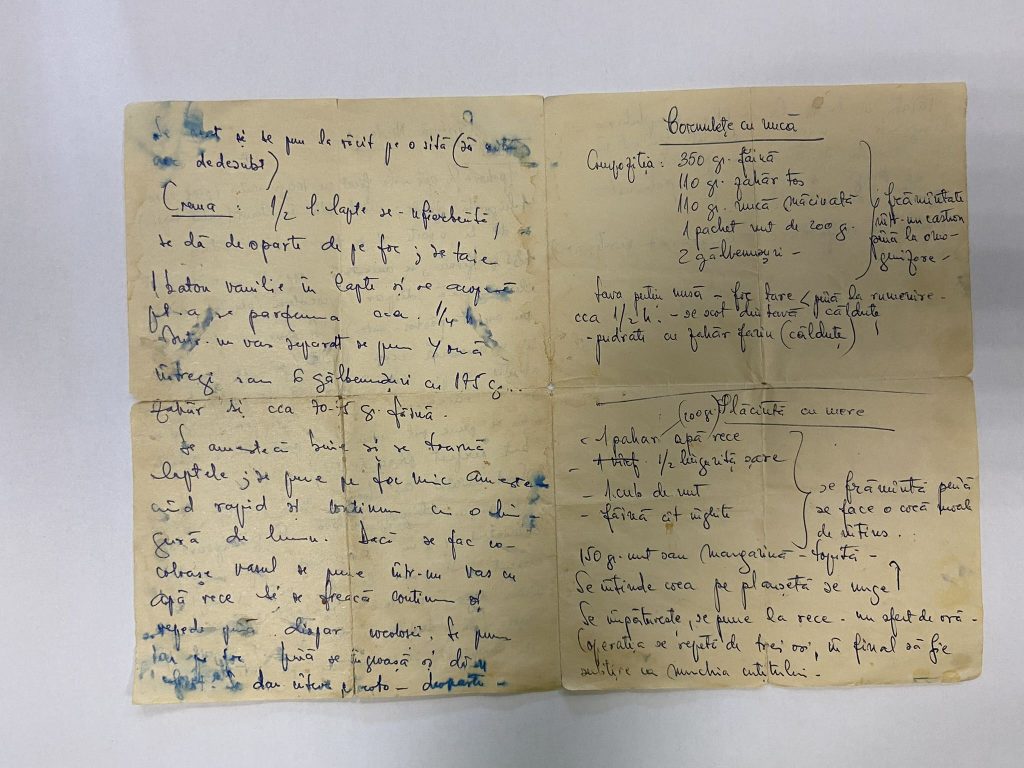 și se pun la răcit pe o sită (să
dedesubt)
Crema : 1/2 l. lapte se fierbe
se dă deoparte de pe foc ; se taie
1 baton vanilie în lapte și se acoperă
pt. a se parfuma cca. 1/4 h.
Într-un vas separat se pun 4 ouă
întregi sau 6 gălbenușuri cu 175 g.
zahăr și cca 70-75 gr. făină.
Se amestecă bine și se toarnă
laptele ; se pune pe foc mic ameste-
când rapid și continuu cu o lin-
gură de lemn. Dacă se fac co-
coloașe vasul se pune într-un vas cu
apă rece și se freacă continuu și
repede până dispar cocoloașii. Se pune
iar pe foc până se îngroașă și
Se dau câteva clocote - deoparte -
Cornulețe cu nucă
Compoziția : 350 gr. făină
110 gr. zahăr tos
110 gr. nucă măcinată
1 pachet unt de 200 g.
2 gălbenușuri -
frămîntate
într-un castron
pînă la omo-
genizare -
tava puțin unsă - foc tare < pînă la rumenire -
cca 1/2 h. - se scot din tavă căldute
- pudrați cu zahăr farin (călduțe) !
(200 g) Plăcintă cu mere
1 pahar apă rece
- 1/2 linguriță sare
- 1 cub de unt
- făină cît înghite
se frămîntă pînă
se face o cocă
de întins .
150 g. unt sau margarină - topită -
Se întinde coca pe planșetă se unge
Se împăturește, se pune la rece - un sfert de oră -
Operația se repetă de trei ori, în final să fie
subțire ca muchia cuțitului -